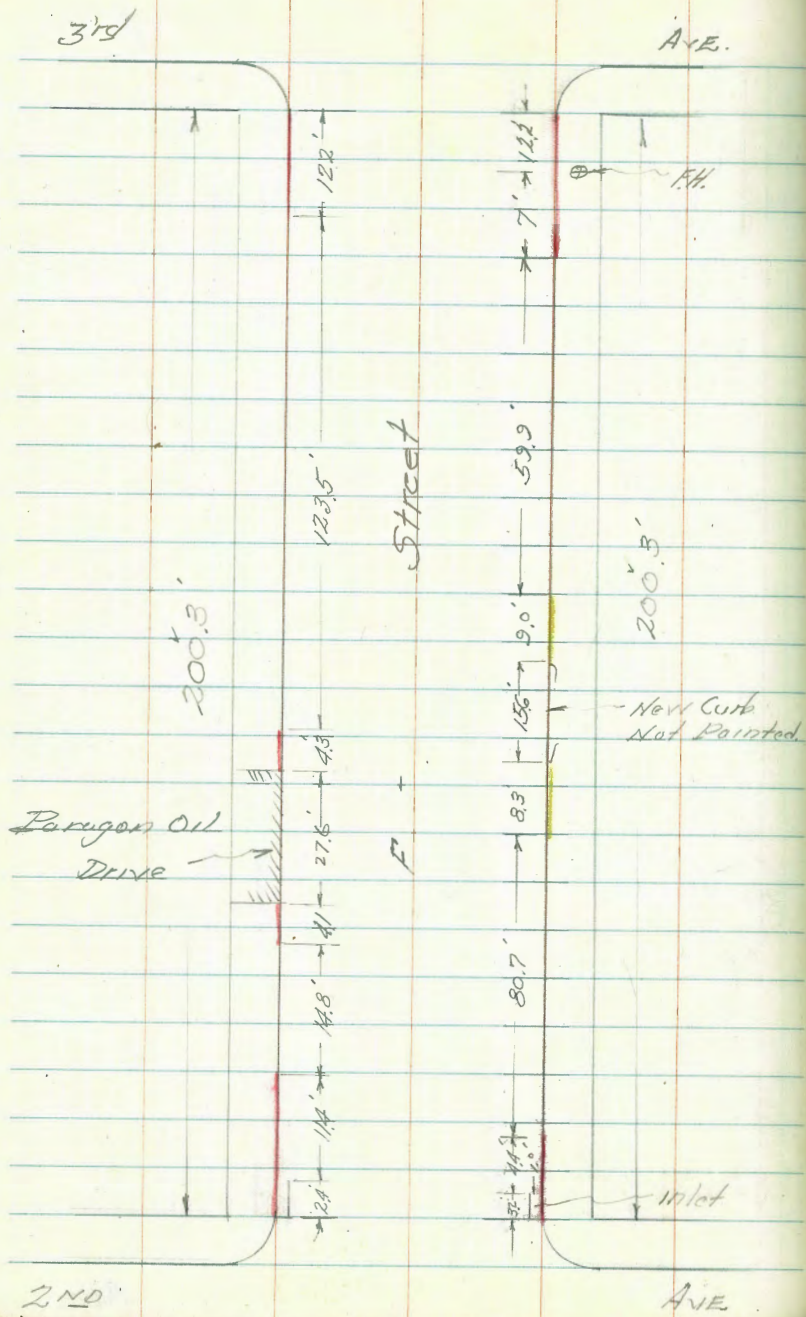 3rd
AVE.
12.2'
12.2'
F.H.
7'
59.9'
123.5'
Street
200.3'
200.3'
9.0'
15.6'
New Curb
Not Painted.
4.3'
8.3'
Paragon Oil
Drive
27.6'
F
4.1
80.7'
14.8'
11.4'
4.4'
2.4'
3.2'
Inlet
2ND
AVE